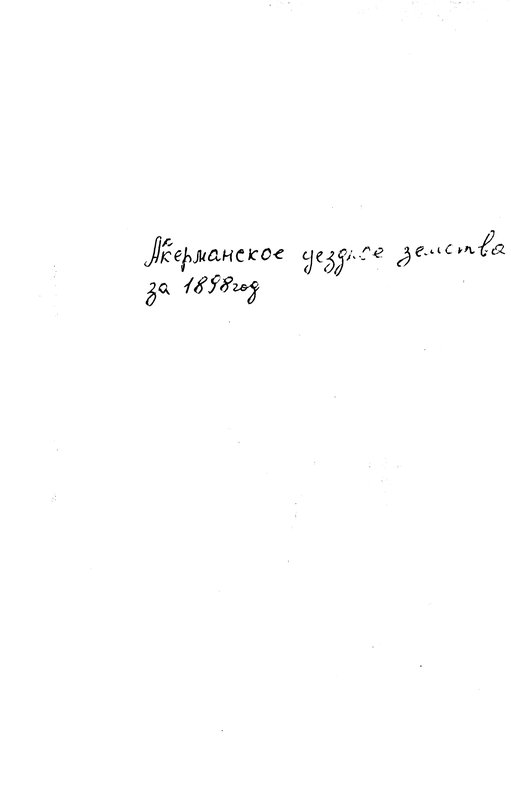 Аккерманское уездное земства
за 1898год